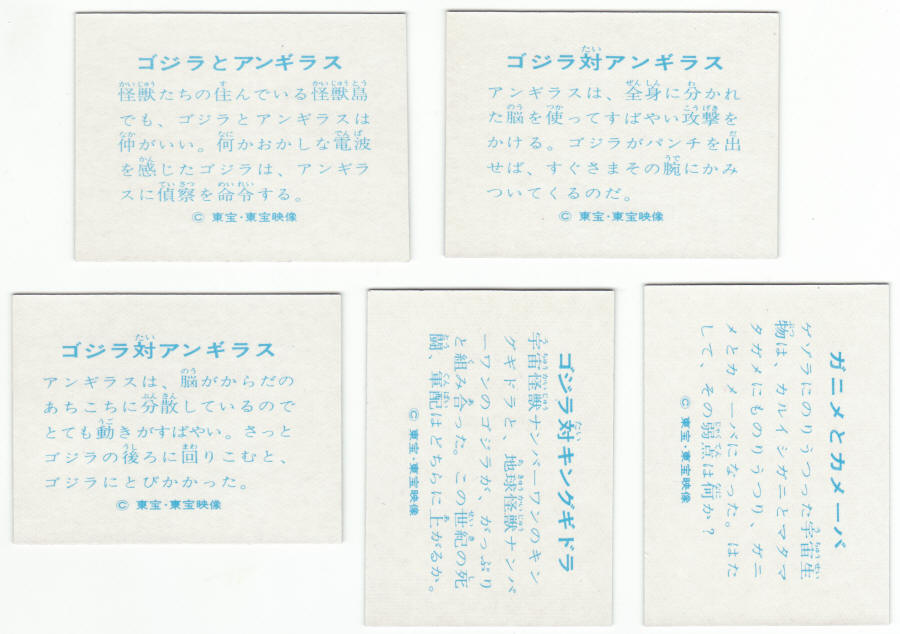 ゴジラとアンギラス
怪獣たちの住んでいる怪獣島
でも、ゴジラとアンギラスは
仲がいい。何かおかしな電波
を感じたゴジラは、アンギラ
スに偵察を命令する。
© 東宝・東宝映像
ゴジラ対アンギラス
アンギラスは、全身に分かれ
た脳を使ってすばやい攻撃を
かける。ゴジラがパンチを出
せば、すぐさまその腕にかみ
ついてくるのだ。
© 東宝・東宝映像
ゴジラ対アンギラス
アンギラスは、脳がからだの
あちこちに分散しているので
とても動きがすばやい。さっと
ゴジラの後ろに回りこむと、
ゴジラにとびかかった。
© 東宝・東宝映像
ゴジラ対キングギドラ
宇宙怪獣ナンバーワンのキン
グギドラと、地球怪獣ナンバ
ーワンのゴジラが、がっぷり
と組み合った。この世紀の死
闘、軍配はどちらに上がるか。
© 東宝・東宝映像
ガニメとカメーバ
ゲゾラにのりうつった宇宙生
物は、カルイシガニとマタマ
タガメにものりうつり、ガニ
メとカメーバになった。はた
して、その弱点は何か？
© 東宝・東宝映像